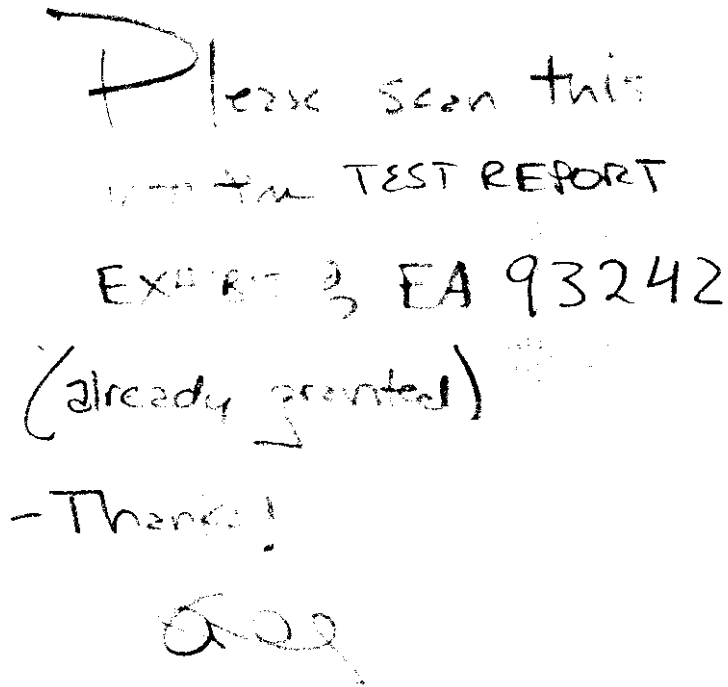 Please scan this
the TEST REPORT
EXHIBIT EA 93242
(already granted)
- Thanks!